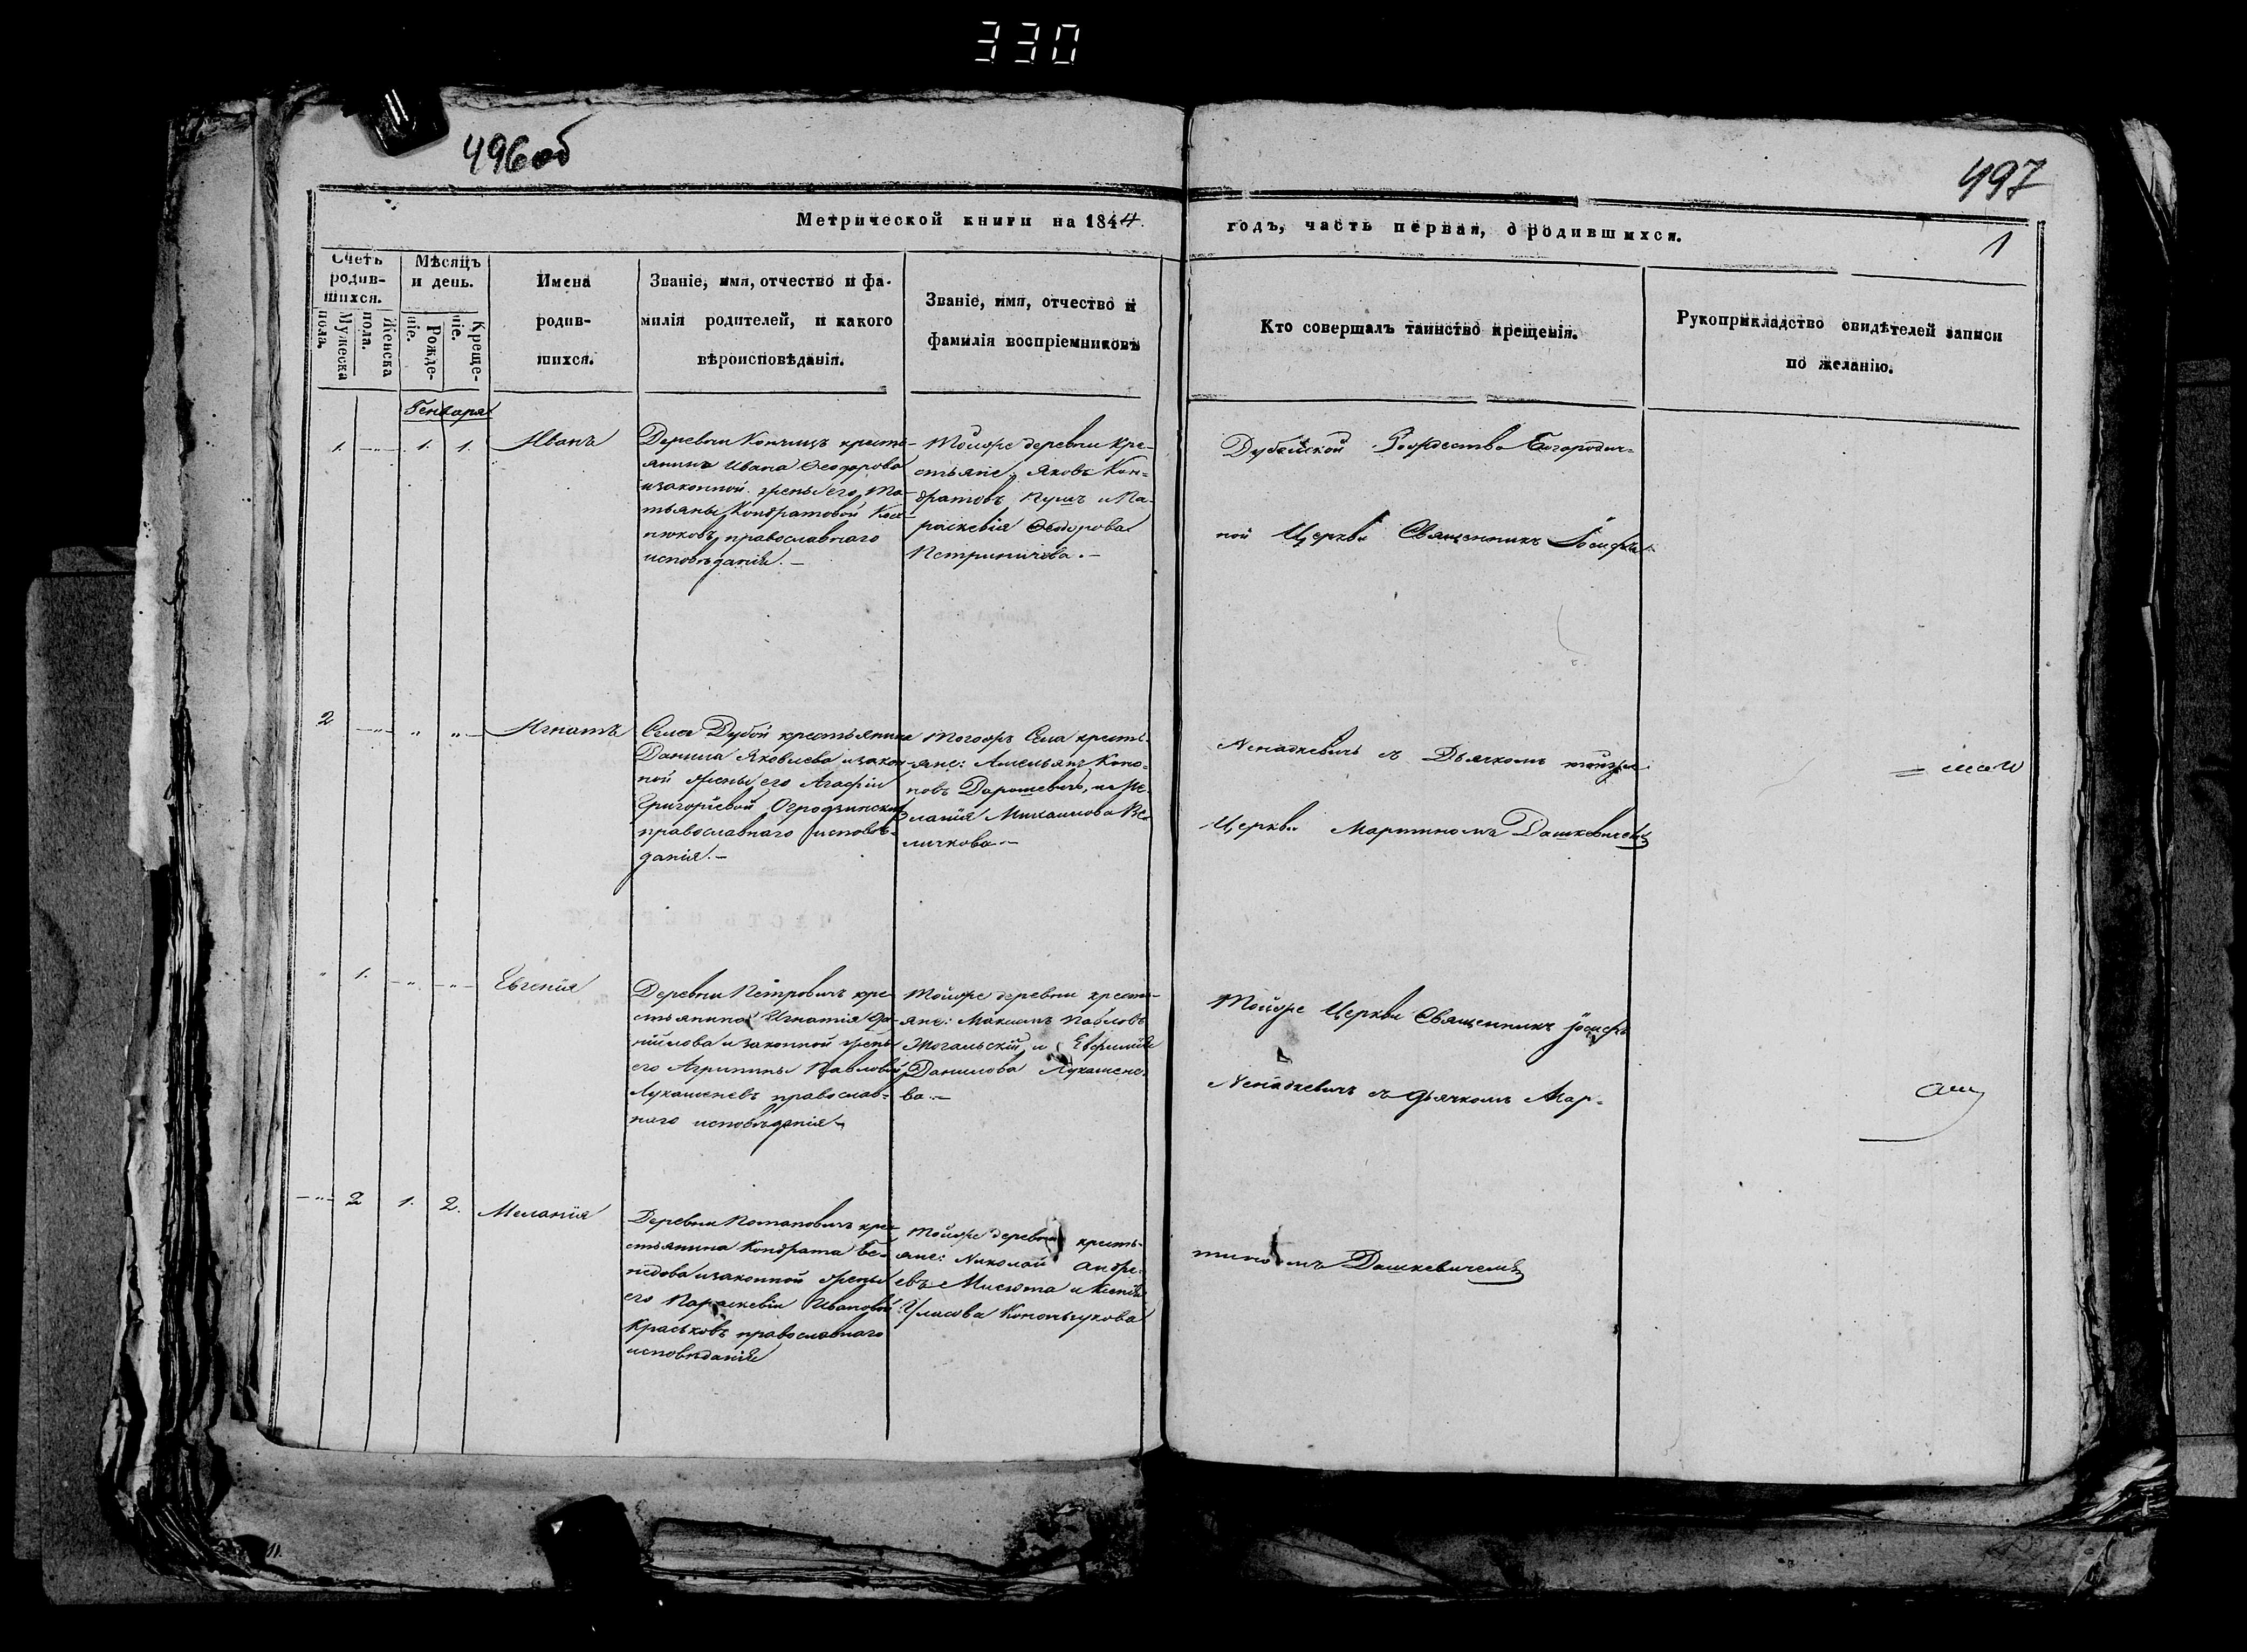 330
496об
497
Метрической книги на 1844.
годъ, часть первая, о родившихся.
1
Счетъ родив-шихся.
Мужеска пола.
Женска пола.
Мѣсяцъ и день.
Рожде-ніе.
Креще-ніе.
Имена
родив-
шихся.
Званіе, имя, отчество и фа-
милія родителей, и какого
вѣроисповѣданія.
Званіе, имя, отчество и
фамилія воспріемниковъ
Кто совершалъ таинство крещенія.
Рукоприкладство свидѣтелей записи
по желанію.
Генваря
1. — „ — 1. 1. Иванъ
Деревни кресть-
янина Ивана Ѳеодорова
и законной жены его Та-
тьяны Кондратовой
православнаго
исповѣданія. —
Тойже деревни кре-
стьяне: Яковъ Кон-
дратовъ и Па-
раскевія Ѳеодорова
Петриничева. —
Дубойской Рождество Богородич-
ной Церкви Священникъ Іосифъ
2 — „ — „ „ — Игнатъ
Села Дубой крестьянина
Данила Яковлева и закон-
ной жены его Агафіи
Григорьевой
православнаго исповѣ-
данія. —
Тогожъ Села кресть-
яне: Амельянъ Коно-
новъ Дорошевичъ, и Ме-
ланія Михаилова Ве-
личкова —
Ненадкевичъ съ Дьячкомъ тойже
Церкви Мартиномъ Дашкевичемъ
„ 1. — „ — „ — Евгенія
Деревни Петровичъ кре-
стьянина Игнатія Да-
нилова и законной жены
его Агрипины Павловой
Лукашеневъ православ-
наго исповѣданія —
Тойже деревни кресть-
яне: Максимъ Павловъ
и Евфимія
Данилова Лукашене-
ва. —
Тойже Церкви Священникъ Іосифъ
Ненадкевичъ съ дьячкомъ Мар-
— „ — 2 1. 2. Меланія
Деревни Потаповичъ кре-
стьянина Кондрата Бе-
недова и законной жены
его Параскевіи Ивановой
Краськовъ православнаго
исповѣданія
Тойже деревни кресть-
яне: Николай Андре-
евъ Мисюта и Ксенія
Уласова
тиномъ Дашкевичемъ